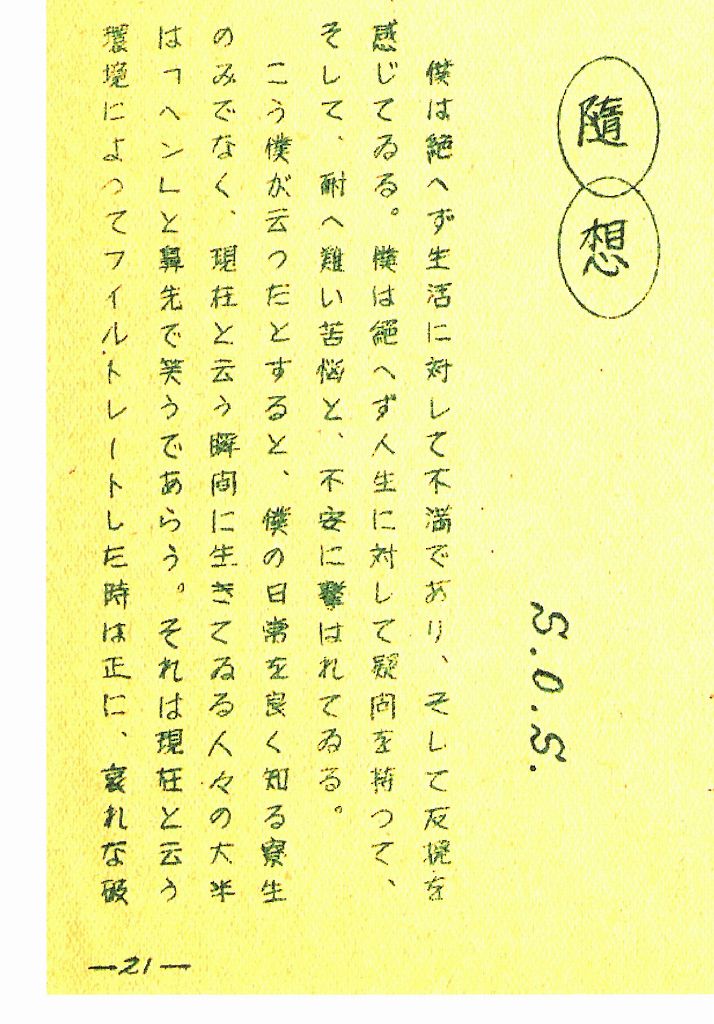 隨想
S.O.S.
僕は絶へず生活に対して不満であり、そして反撥を
感じてゐる。僕は絶へず人生に対して疑問を持つて、
そして、耐へ難い苦悩と、不安に襲はれてゐる。
こう僕が云つたとすると、僕の日常を良く知る寮生
のみでなく、現在と云う瞬間に生きてゐる人々の大半
は「ヘン」と鼻先で笑うであらう。それは現在と云う
環境によつてフイルトレートした時は正に、哀れな破
—21—